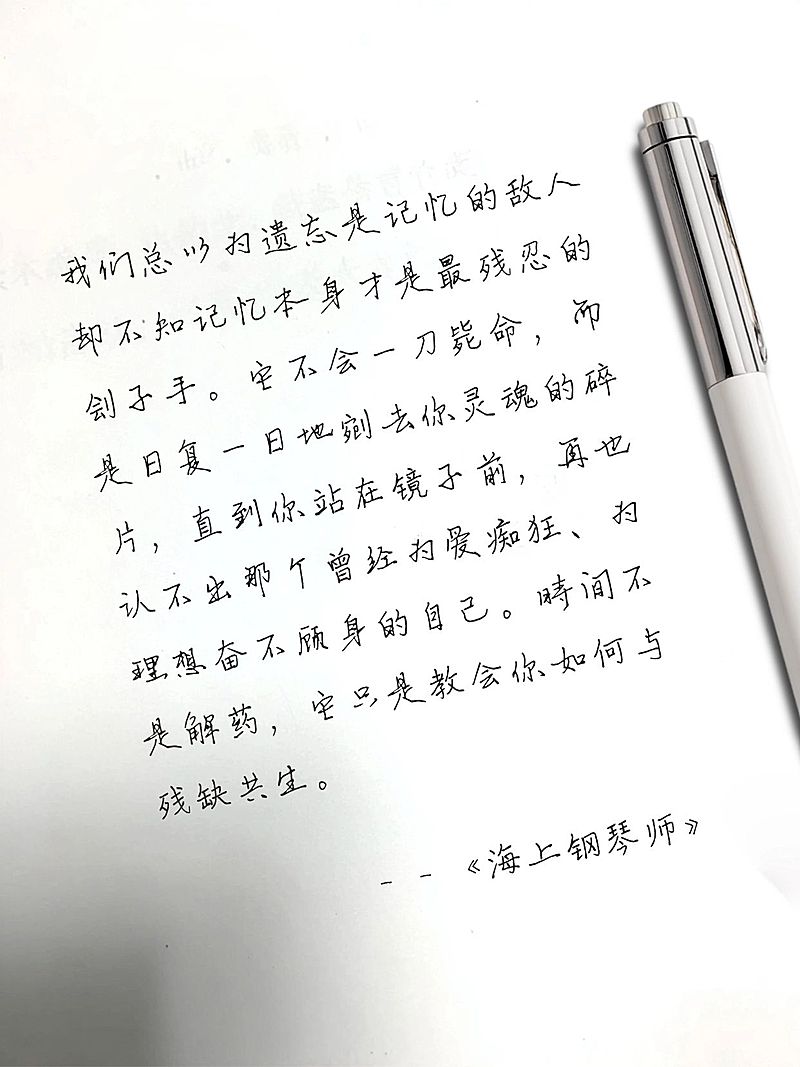 我们总以为遗忘是记忆的敌人
却不知记忆本身才是最残忍的
刽子手。它不会一刀毙命，而
是日复一日地剜去你灵魂的碎
片，直到你站在镜子前，再也
认不出那个曾经为爱痴狂、为
理想奋不顾身的自己。時间不
是解药，它只是教会你如何与
残缺共生。
--《海上钢琴师》